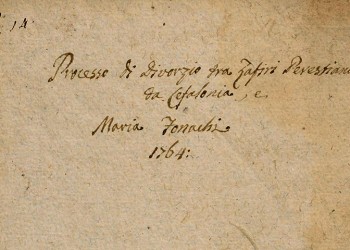 14
Processo di divorzio tra Zafiri Perestian
da Cefalonia, e
Maria Jonachi
1764: